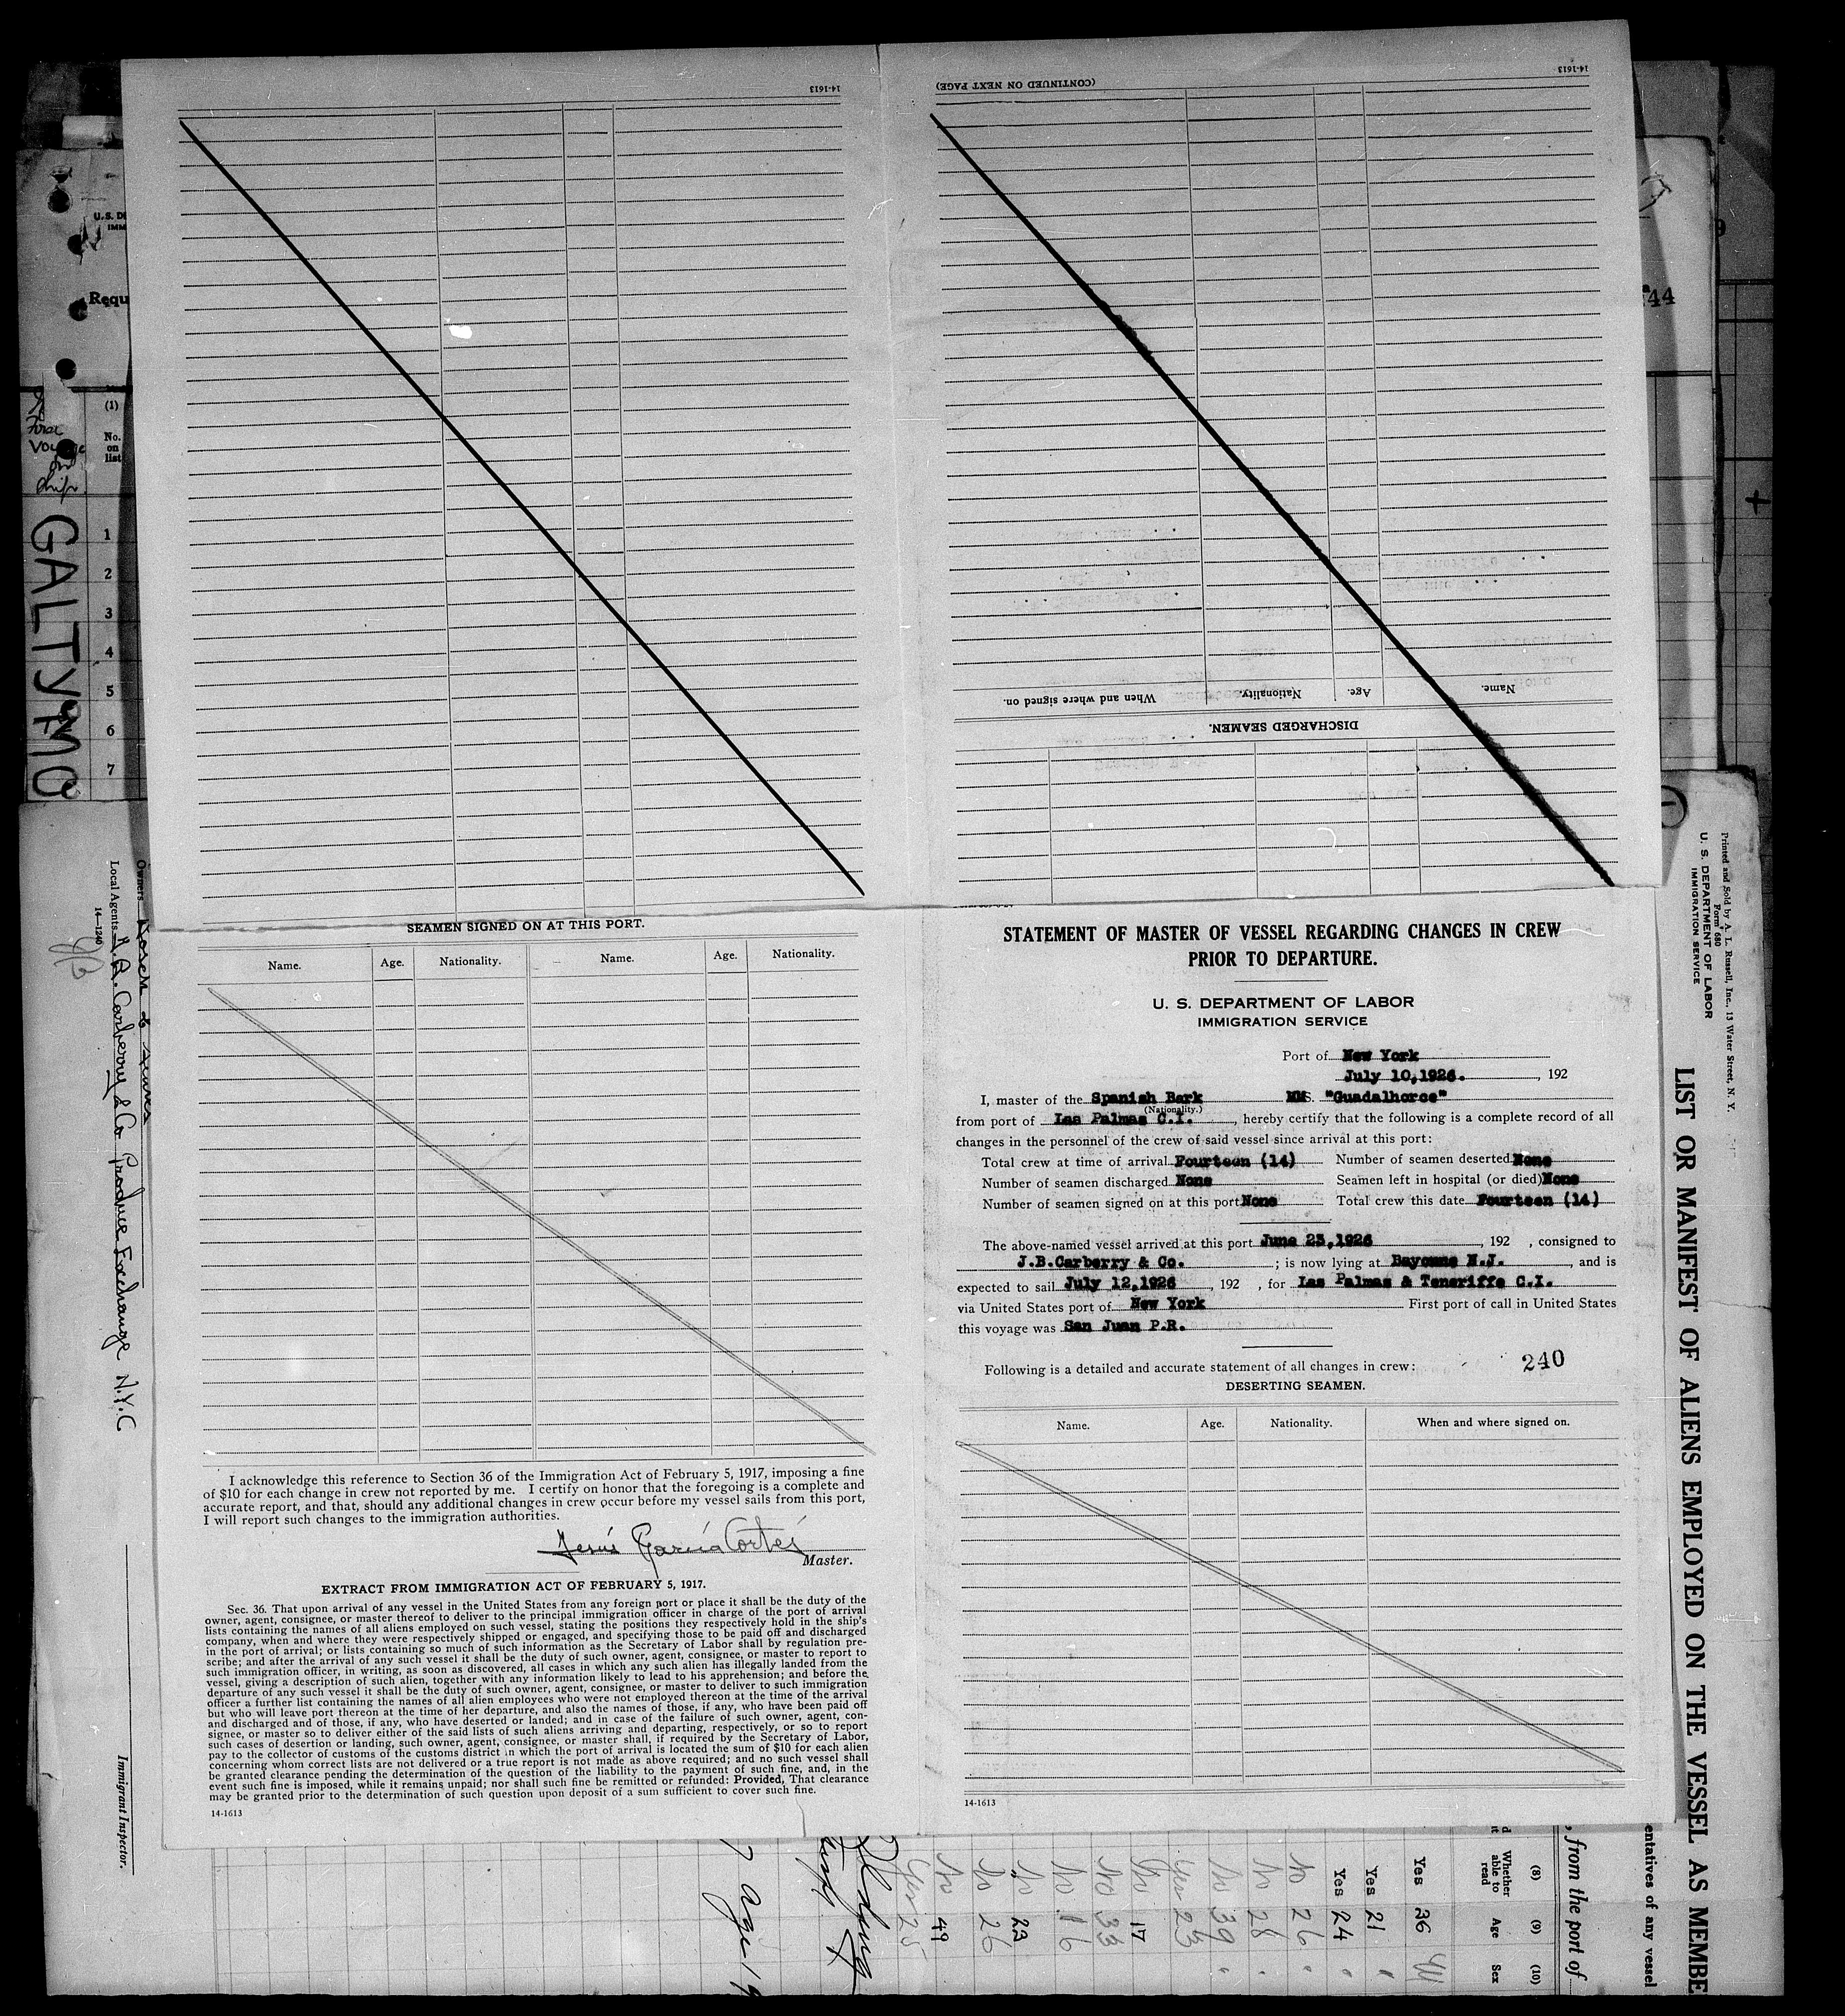 14-1613
(CONTINUED ON NEXT PAGE)
14-1613
When and where signed on.
Nationality.
Age.
Name.
DISCHARGED SEAMEN.
SEAMEN SIGNED ON AT THIS PORT.
Name. Age. Nationality. Name. Age. Nationality.
I acknowledge this reference to Section 36 of the Immigration Act of February 5, 1917, imposing a fine
of $10 for each change in crew not reported by me. I certify on honor that the foregoing is a complete and
accurate report, and that, should any additional changes in crew occur before my vessel sails from this port,
I will report such changes to the immigration authorities.
Jesús García Cortés
Master.
EXTRACT FROM IMMIGRATION ACT OF FEBRUARY 5, 1917.
Sec. 36. That upon arrival of any vessel in the United States from any foreign port or place it shall be the duty of the
owner, agent, consignee, or master thereof to deliver to the principal immigration officer in charge of the port of arrival
lists containing the names of all aliens employed on such vessel, stating the positions they respectively hold in the ship's
company, when and where they were respectively shipped or engaged, and specifying those to be paid off and discharged
in the port of arrival; or lists containing so much of such information as the Secretary of Labor shall by regulation pre-
scribe; and after the arrival of any such vessel it shall be the duty of such owner, agent, consignee, or master to report to
such immigration officer, in writing, as soon as discovered, all cases in which any such alien has illegally landed from the
vessel, giving a description of such alien, together with any information likely to lead to his apprehension; and before the
departure of any such vessel it shall be the duty of such owner, agent, consignee, or master to deliver to such immigration
officer a further list containing the names of all alien employees who were not employed thereon at the time of the arrival
but who will leave port thereon at the time of her departure, and also the names of those, if any, who have been paid off
and discharged and of those, if any, who have deserted or landed; and in case of the failure of such owner, agent, con-
signee, or master so to deliver either of the said lists of such aliens arriving and departing, respectively, or so to report
such cases of desertion or landing, such owner, agent, consignee, or master shall, if required by the Secretary of Labor,
pay to the collector of customs of the customs district in which the port of arrival is located the sum of $10 for each alien
concerning whom correct lists are not delivered or a true report is not made as above required; and no such vessel shall
be granted clearance pending the determination of the question of the liability to the payment of such fine, and, in the
event such fine is imposed, while it remains unpaid; nor shall such fine be remitted or refunded: Provided, That clearance
may be granted prior to the determination of such question upon deposit of a sum sufficient to cover such fine.
14-1613
STATEMENT OF MASTER OF VESSEL REGARDING CHANGES IN CREW
PRIOR TO DEPARTURE.
U. S. DEPARTMENT OF LABOR
IMMIGRATION SERVICE
Port of New York
July 10,1926. , 192
I, master of the Spanish Bark MMS. "Guadalhorce"
(Nationality.)
from port of Las Palmas C.I. , hereby certify that the following is a complete record of all
changes in the personnel of the crew of said vessel since arrival at this port:
Total crew at time of arrival Fourteen (14) Number of seamen deserted None
Number of seamen discharged None Seamen left in hospital (or died) None
Number of seamen signed on at this port None Total crew this date Fourteen (14)
The above-named vessel arrived at this port June 23,1926 , 192 , consigned to
J.B.Carberry & Co. ; is now lying at Bayonne N.J. , and is
expected to sail July 12,1926 , 192 , for Las Palmas & Teneriffe C.I.
via United States port of New York First port of call in United States
this voyage was San Juan P.R.
Following is a detailed and accurate statement of all changes in crew: 240
DESERTING SEAMEN.
Name. Age. Nationality. When and where signed on.
14-1613
U.S. DE
IMM
Requ
44
(1)
No.
on
list
First
Voyage
on
ship.
GALTYMO
1
2
3
4
5
6
7
Owners
Local Agents J. A. Carberry & Co Produce Exchange N.Y.C
14-1240
Immigrant Inspector.
Printed and Sold by A. L. Russell, Inc., 13 Water Street, N. Y.
Form 680
U. S. DEPARTMENT OF LABOR
IMMIGRATION SERVICE
LIST OR MANIFEST OF ALIENS EMPLOYED ON THE VESSEL AS MEMBE
entatives of any vessel
, from the port of
(8) (9) (10)
Whether able to read Age Sex
Yes 36 M
Yes 21
Yes 24
No 26
No 28
No 39
Yes 23
No 17
No 33
No 16
No 23
No 26
No 49
Yes 25
age 19